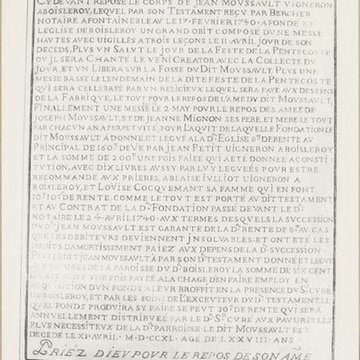 CY DEVANT REPOSE LE CORPS DE JEAN MOUSSAULT VIGNERON
ABOISLEROY, LEQUEL PAR SON TESTAMENT REÇU PAR BERCHER
NOTAIRE AFONTAINEBLEAU LE 17. FEVRIER 1740. A FONDE EN
L'EGLISE DE BOISLEROY UN GRAND OBIT COMPOSÉ D'UNE MESSE
HAUTES AVEC VIGILLES A TROIS LEÇONS LE 11 AVRIL JOUR DE SON
DECEDS, PLUS UN SALUT LE JOUR DE LA FESTE DE LA PENTECOSTE
OU IL SERA CHANTÉ LE VENI CREATOR AVEC LA COLLECTE DU
JOUR ET UN LIBERA SUR LA FOSSE DUDIT MOUSSAULT. PLUS UNE
MESSE BASSE LE LENDEMAIN DE LA DITE FESTE DE LA PENTECOSTE
QUI SERA CELEBRÉE PAR UN RELIGIEUX, LEQUEL SERA PAYÉ AUX DEPENS
DE LA FABRIQUE, LE TOUT POUR LE REPOS DE L'AME DUDIT MOUSSAULT,
FINALLEMENT UNE MESSE LE 2 MAY POUR LE REPOS DES AMES DE
JOSEPH MOUSSAULT, ET DE JEANNE MIGNON SES PERE, ET MERE LE TOUT
PAR CHACUN AN A PERPETUITÉ, POUR LAQUIT DE LAQUELLE FONDATION LE
DIT MOUSSAULT A DONNÉ, ET LEGUÉ A LAD. EGLISE 8# DE RENTE AU
PRINCIPAL DE 160# DEUE PAR JEAN PETIT VIGNERON ABOISLEROY
ET LA SOMME DE 200# UNE FOIS PAIÉE QUI A ETÉ DONNÉE A CONSTI
TUTION, AVEC DIX LIVRES AUSSY PAR LUY LEGUÉES POUR ESTRE
RECOMMANDÉ AUX PRIERES, ABLAISE IVLLIOT VIGNERON A
BOISLEROY, ET LOUISE COCQUEMANT SA FAMME QUI EN FONT
10# 10s DE RENTE, COMME LE TOUT EST PORTÉ AUDIT TESTAMENT
ET AU CONTRAT DE LAD. FONDATION PASSÉ DEVANT LED.
NOTAIRE LE 24. AVRIL 1740. AUX TERMES DESQUELS LA SUCCESSION
DUD. JEAN MOUSSAULT EST GARANTE DE LAD. RENTE DE 8# AU CAS
QUE LES DEBITEURS DEVIENNENT INSOLVABLES ET ONT ETÉ LES
DROITS D'AMORTISSEMENT PAIEZ AUX DEPENS DE LAD. SUCCESSION.
PLUS LEDIT JEAN MOUSSAULT A PAR SOND. TESTAMENT DONNÉ ET LEGUÉ
AUX PAUVRES DE LA PAROISSE DUD. BOISLEROY LA SOMME DE SIX CENT
UNE FOIS PAYÉE A LA CHARGE D'EN FAIRE EMPLOY EN
D'UN FONDS A LEUR PROFFIT EN LA PRESENCE DU Sr CURÉ
DE BOISLEROY, ET PAR LES SOINS DE L'EXECUTEUR DUD. TESTAMENT, LE
QUEL FONDS PRODUIRA SY FAIRE SE PEUT 20# DE RENTE QUI SERA
ANNUELLEMENT DISTRIBUÉE PAR LED. Sr CURÉ AUX PAUVRES LES
PLUS NECESSITEUX DE LAD. PARROISSE. LEDIT MOUSSAULT EST
DECEDÉ LE XI. AVRIL. M.DCC.XL. AGÉ DE LXXVIII ANS.
PRIEZ DIEU POUR LE REPOS DE SON AME